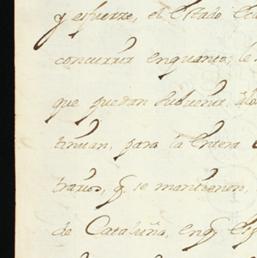 y esfuerze, el Estado Ecc
concurrir enquanto, le
que puedan subvenir, a los
tinuan, para la entera
trarios, q se mantienen,
de Cataluña, enq el Es